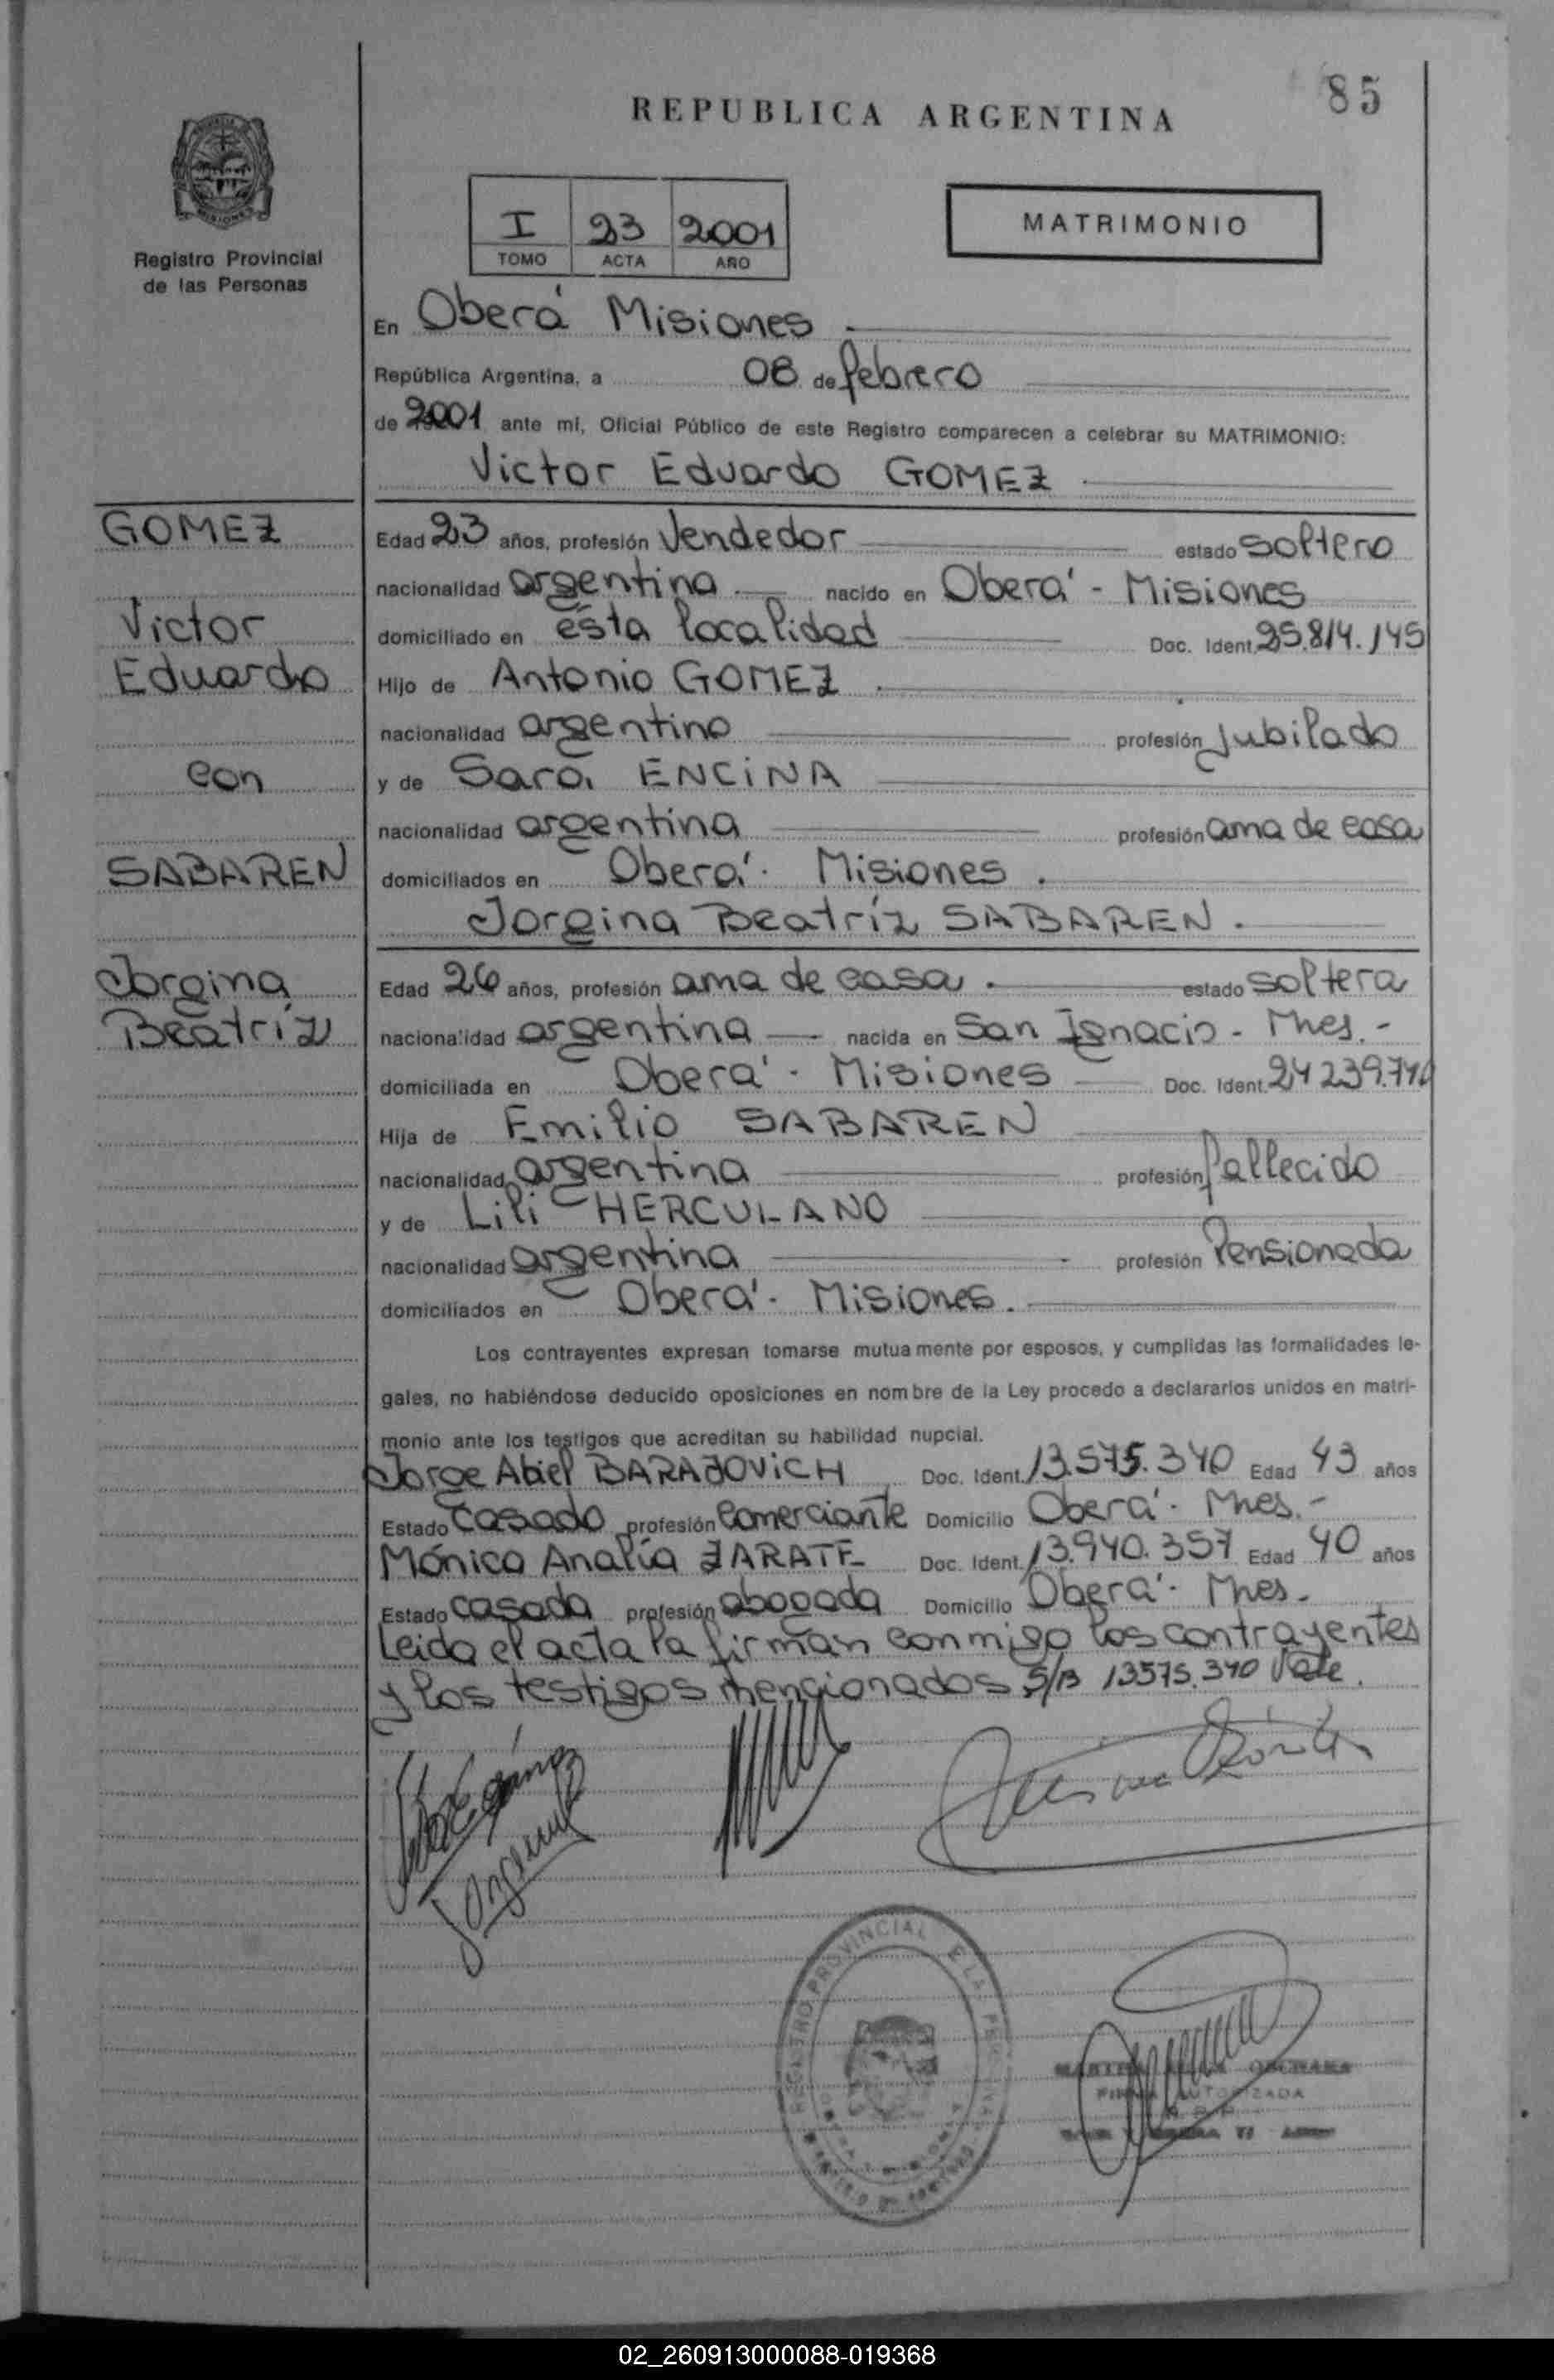 85
REPUBLICA ARGENTINA
I 23 2001
TOMO ACTA AÑO
MATRIMONIO
Registro Provincial
de las Personas
En Oberá Misiones
República Argentina, a 08 de febrero
de 2001 ante mi, Oficial Público de este Registro comparecen a celebrar su MATRIMONIO:
Victor Eduardo GOMEZ
GOMEZ
Victor
Eduardo
con
SABAREN
Jorgina
Beatríz
Edad 23 años, profesión Vendedor estado soltero
nacionalidad argentina nacido en Oberá - Misiones
domiciliado en ésta localidad Doc. Ident. 25.814.145
Hijo de Antonio GOMEZ
nacionalidad argentino profesión jubilado
y de Sara ENCINA
nacionalidad argentina profesión ama de casa
domiciliados en Oberá. Misiones.
Jorgina Beatríz SABAREN.
Edad 26 años, profesión ama de casa. estado soltera
nacionalidad argentina nacida en San Ignacio - Mnes.-
domiciliada en Oberá. Misiones Doc. Ident.
Hija de Emilio SABAREN
nacionalidad argentina profesión fallecido
y de Lili HERCULANO
nacionalidad argentina profesión Pensionada
domiciliados en Oberá. Misiones.
Los contrayentes expresan tomarse mutuamente por esposos, y cumplidas las formalidades le-
gales, no habiéndose deducido oposiciones en nombre de la Ley procedo a declararlos unidos en matri-
monio ante los testigos que acreditan su habilidad nupcial.
Jorge Abiel BARAJOVICH Doc. Ident. 13.575.340 Edad 43 años
Estado casado profesión comerciante Domicilio Oberá. Mnes.-
Mónica Analía ZARATE Doc. Ident. 13.940.357 Edad 40 años
Estado casada profesión abogada Domicilio Oberá. Mnes.
Leida el acta la firman conmigo los contrayentes
y los testigos mencionados S/B 13575.340 Vale.
REGISTRO PROVINCIAL
FIRMA AUTORIZADA
02_260913000088-019368